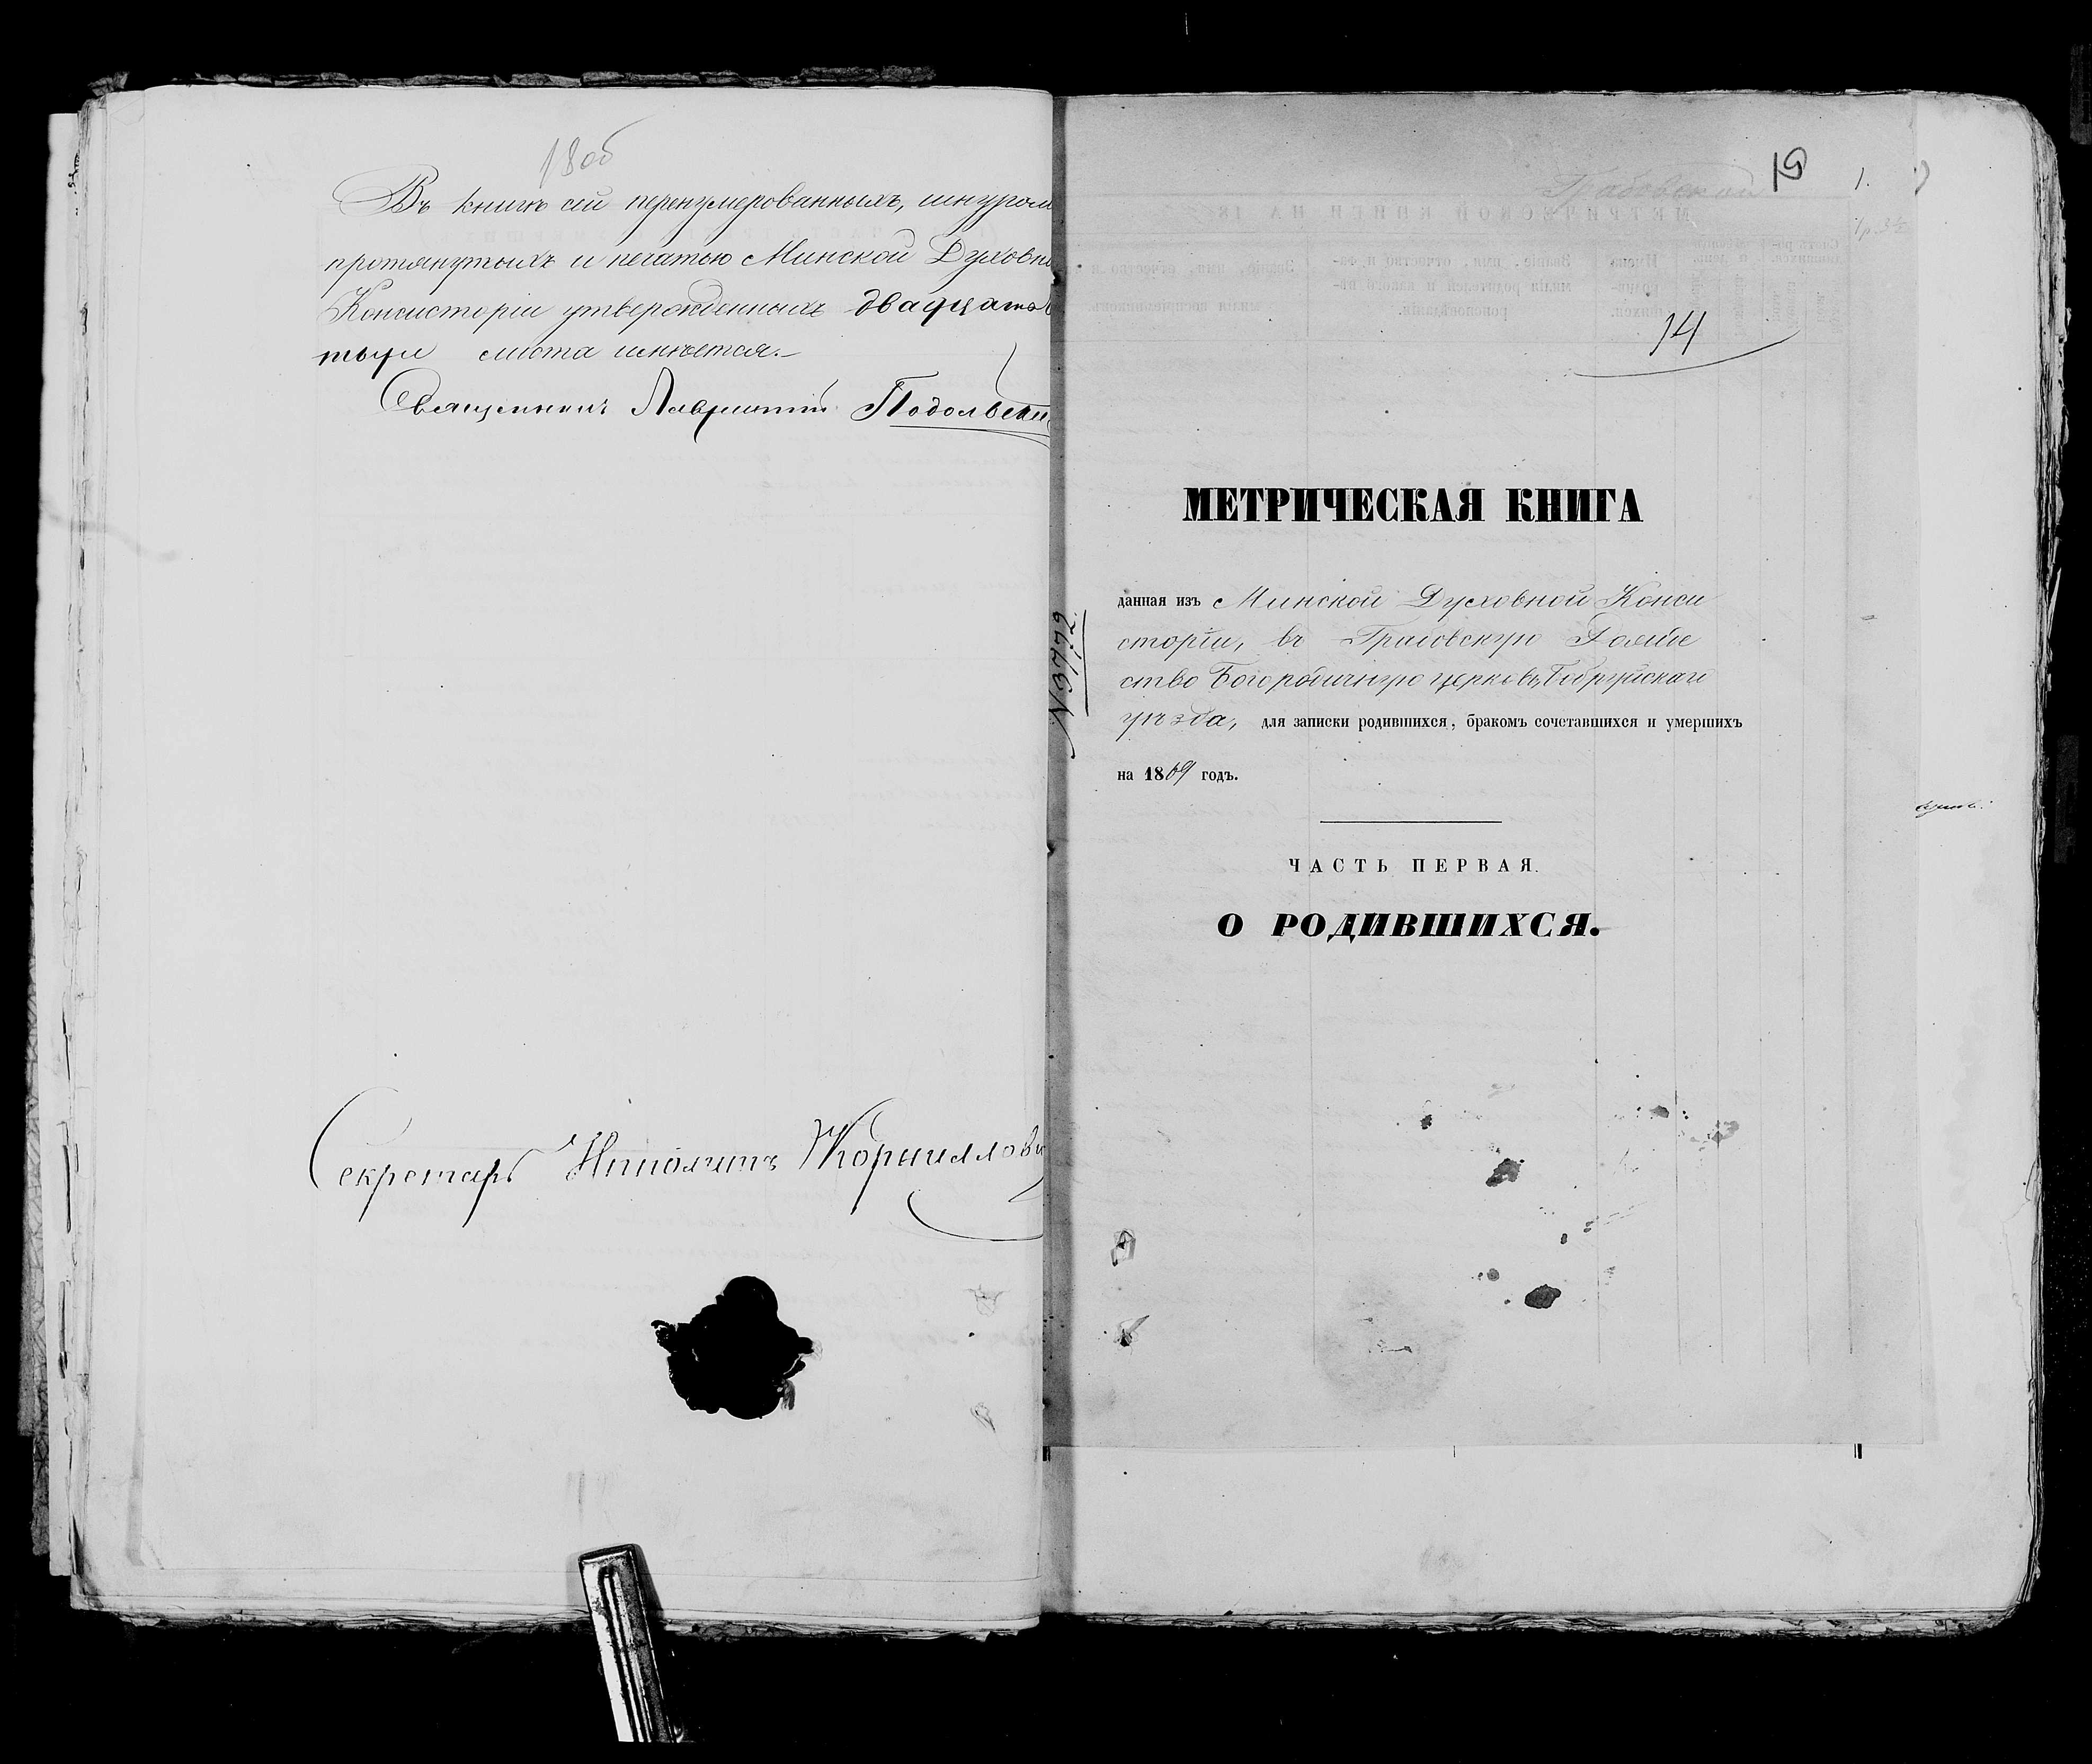 18об
Въ книгѣ сей перенумерованныхъ, шнуром
протянутыхъ и печатью Минской Духовно
Консисторіи утвержденныхъ двадцать
тыре листа имѣется.
Священникъ Лаврентій Подольскій
Секретарь Ипполитъ Корнилло
19
1.
14
МЕТРИЧЕСКАЯ КНИГА
данная изъ Минской Духовной Конси
сторіи, въ Рожде
ство Богородичную церковь, Бобруйскаго
уѣзда, для записки родившихся, бракомъ сочетавшихся и умершихъ
на 1869 годъ.
ЧАСТЬ ПЕРВАЯ.
О РОДИВШИХСЯ.
№ 3772